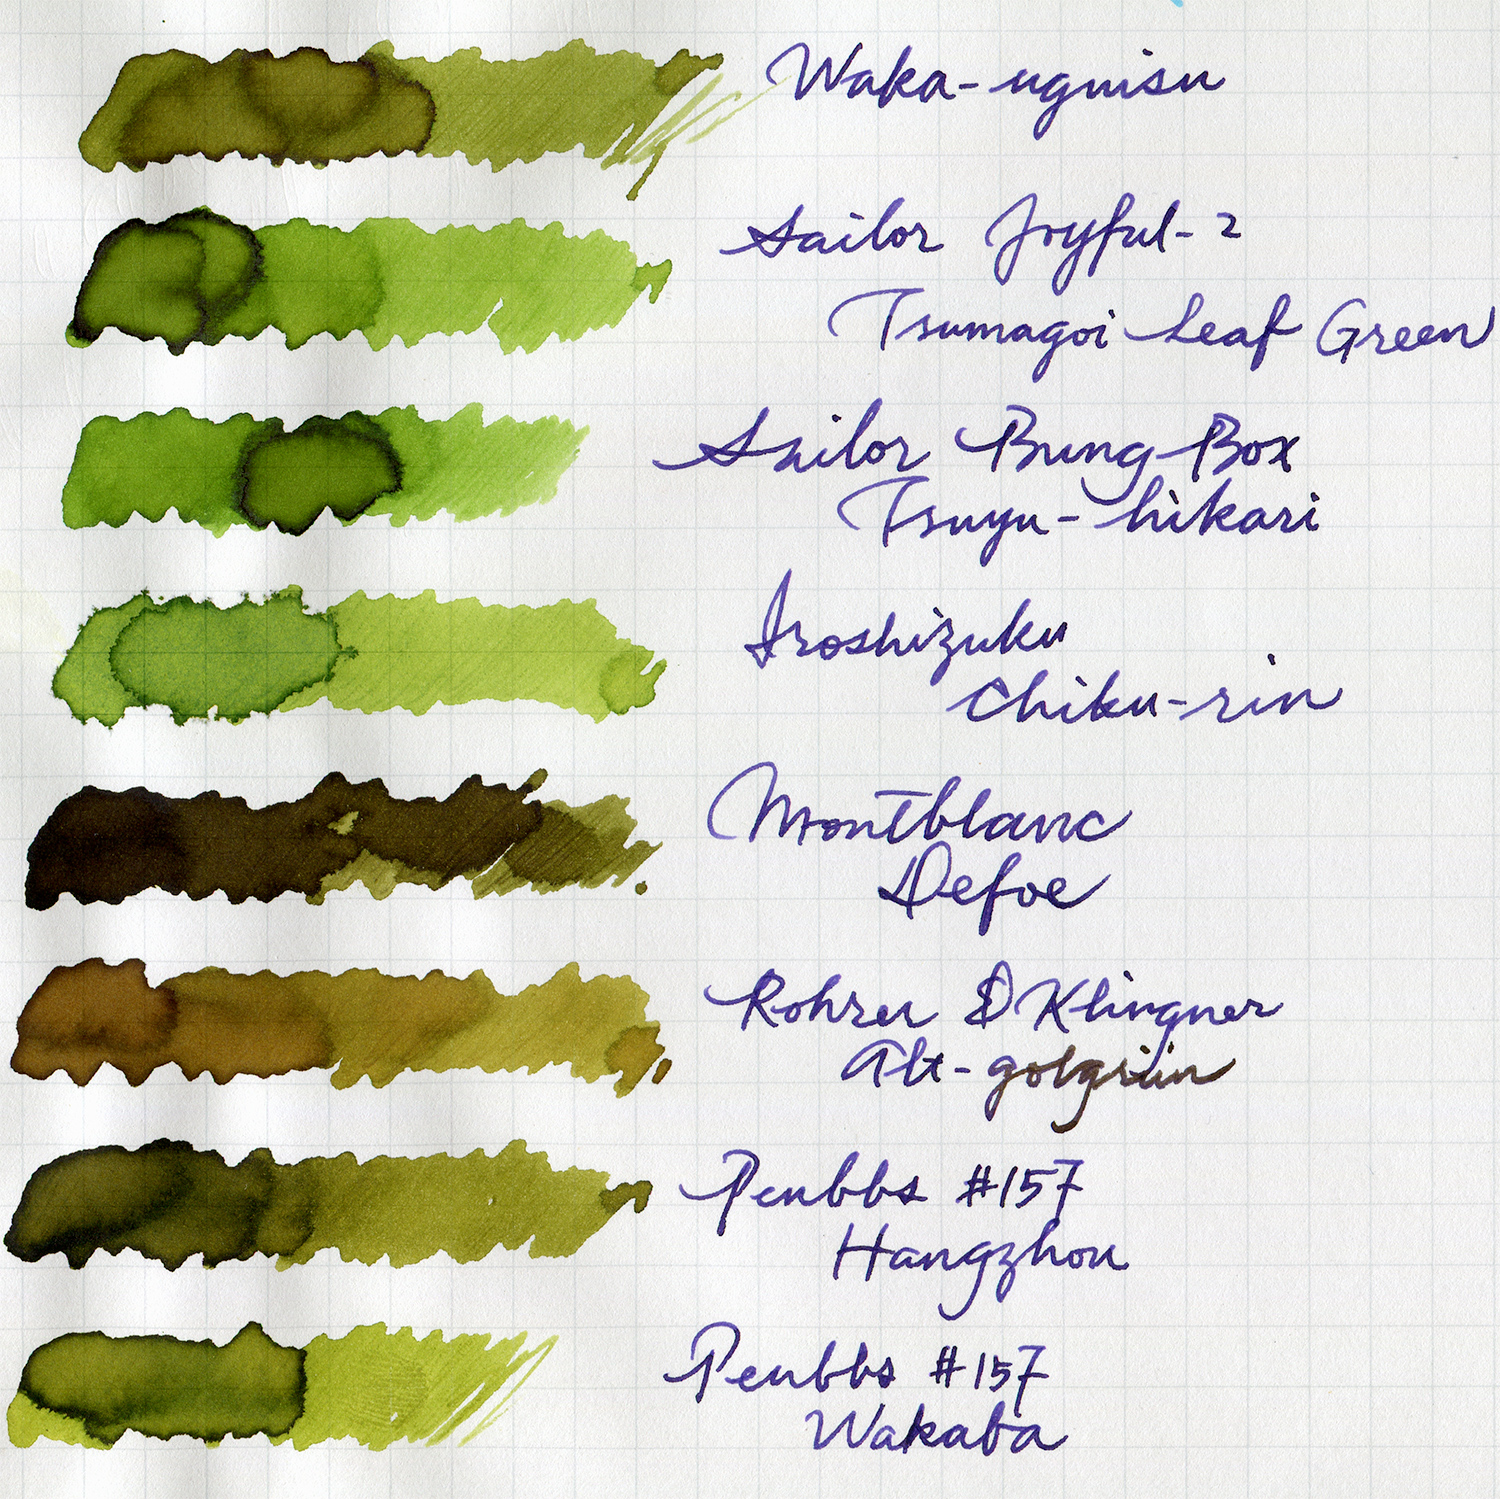 Waka-uguisu
Sailor Joyful-2
Tsumagoi Leaf Green
Sailor Bung Box
Tsuyu-hikari
Iroshizuku
Chiku-rin
Montblanc
Defoe
Rohrer & Klingner
Alt-golgrün
Penbbs #157
Hangzhou
Penbbs #157
Wakaba